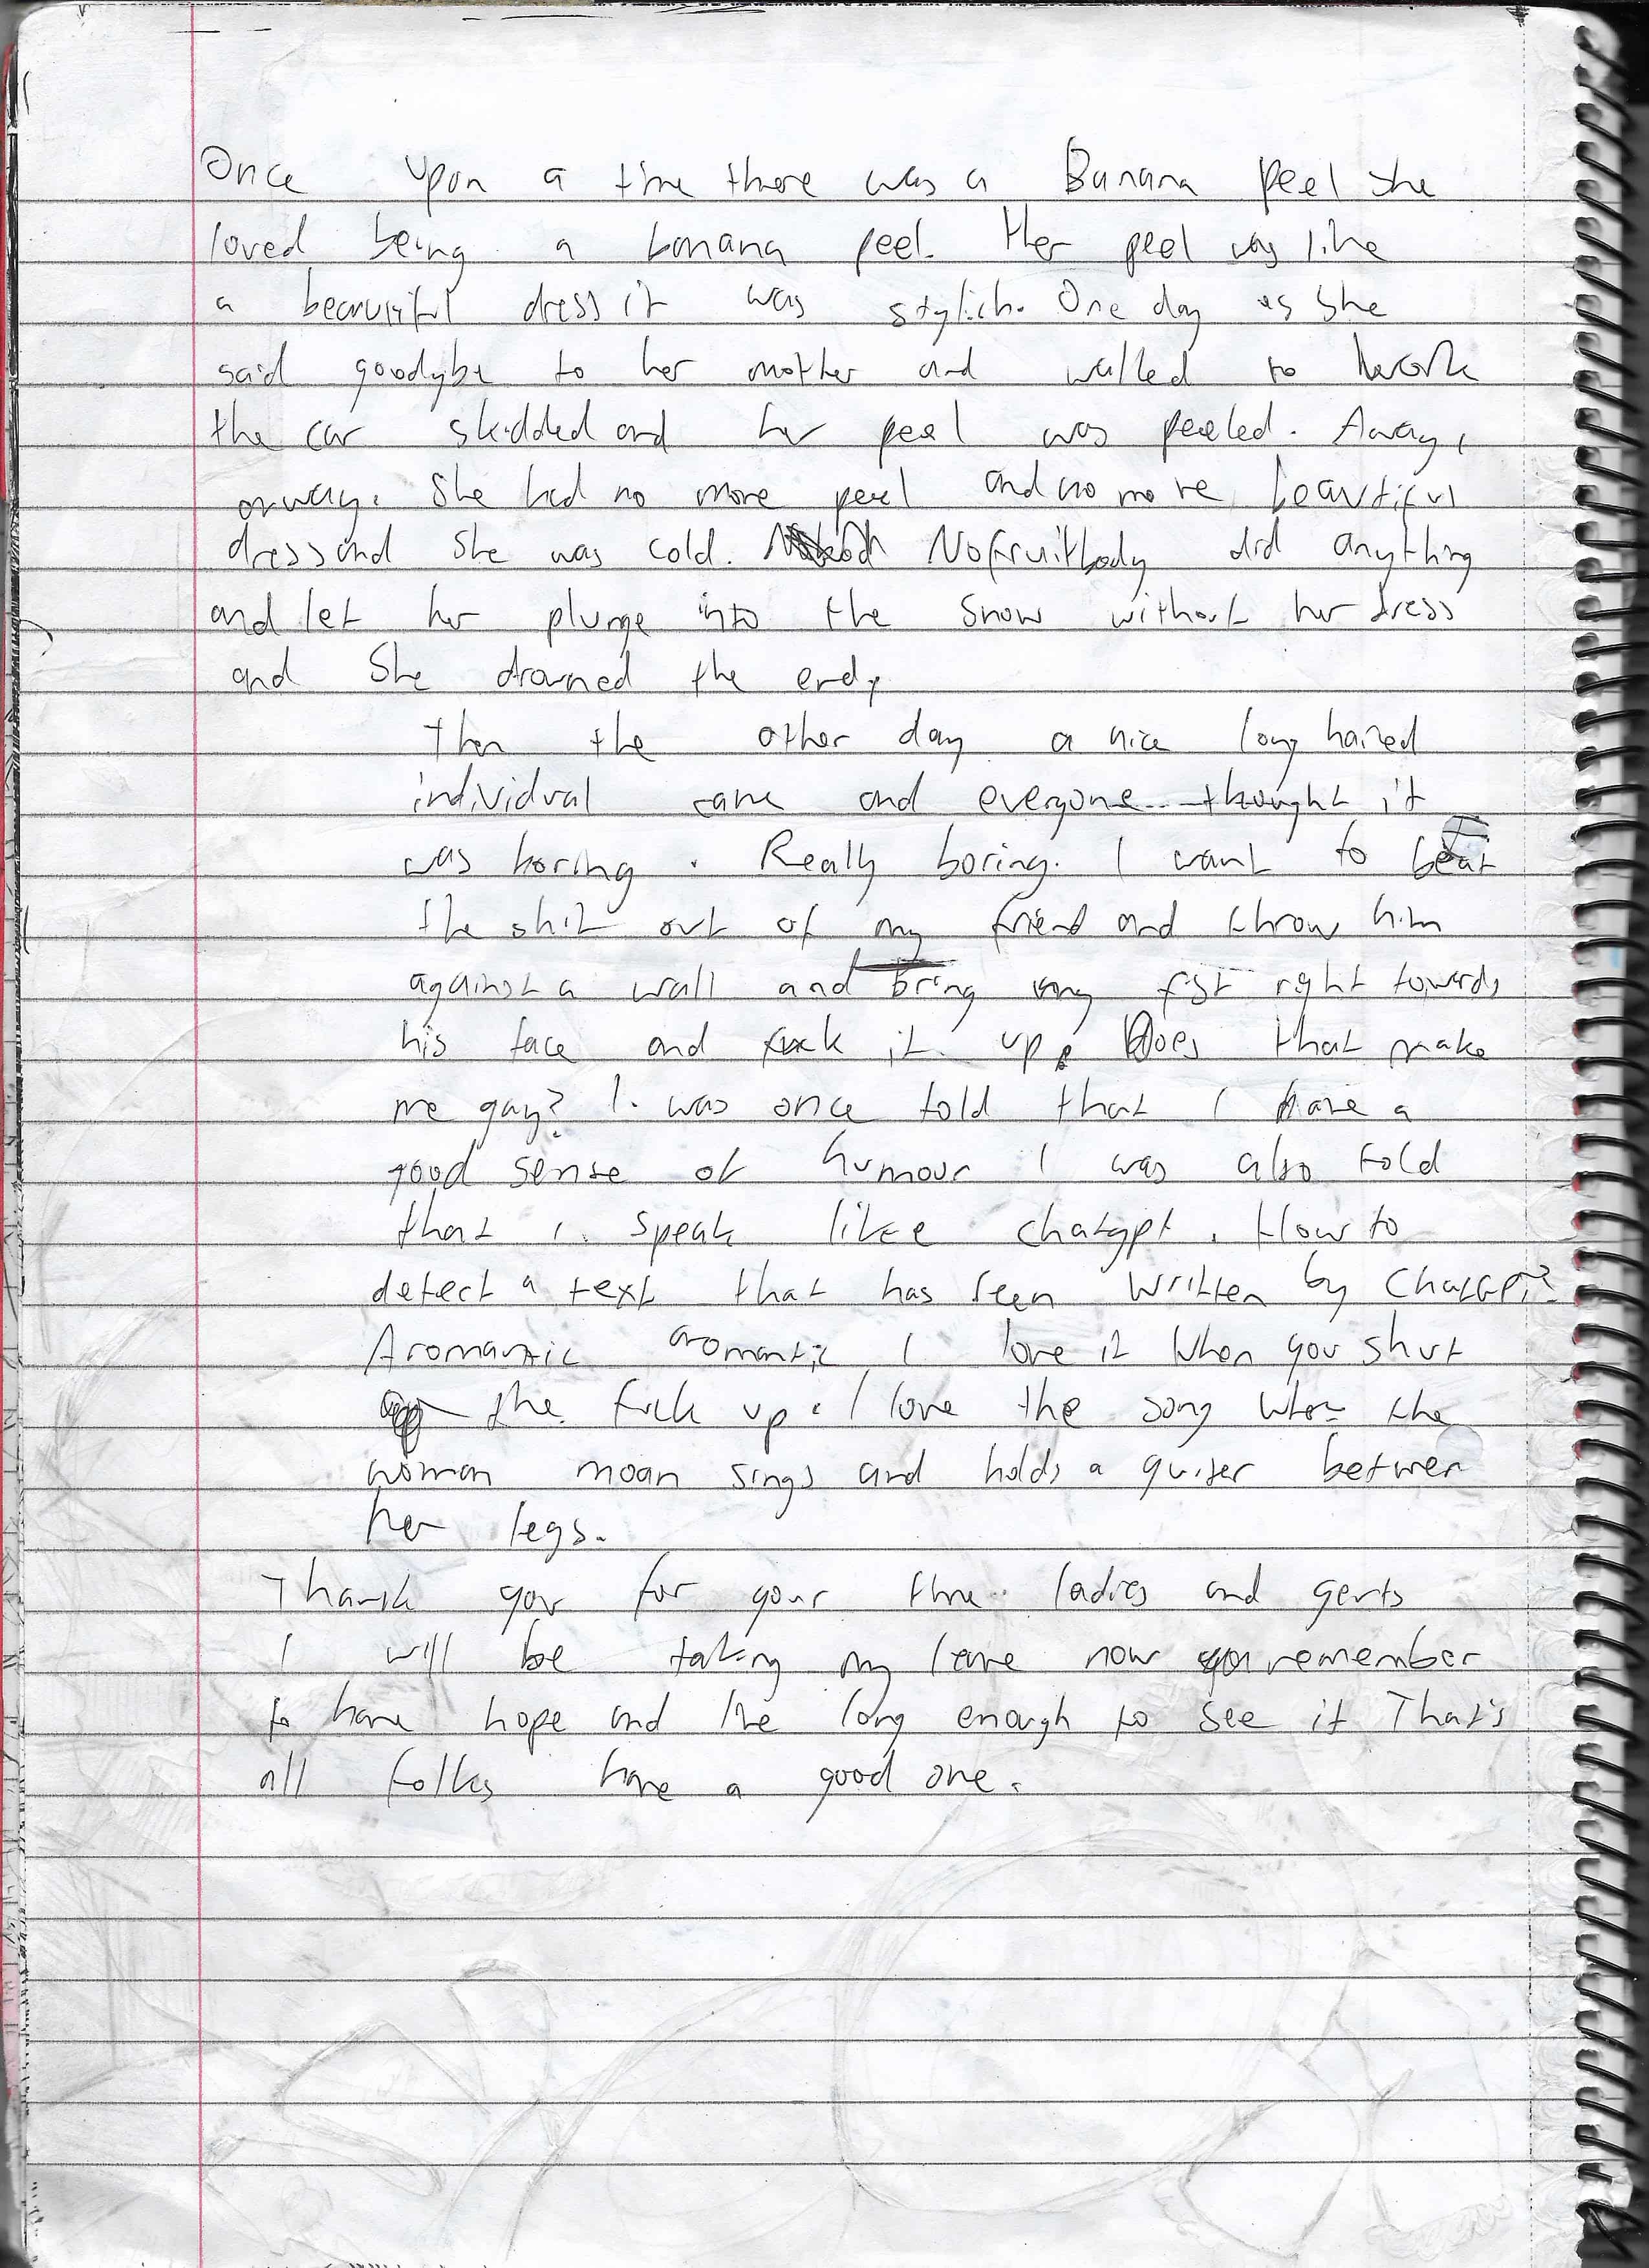 Once upon a time there was a Banana peel she
loved being a banana peel. Her peel was like
a beautiful dress it was stylish. One day as she
said goodybe to her mother and walked to work
the car skidded and her peel was peeled. Away,
away. She had no more peel and no more beautiful
dress and she was cold. Nofruitbody did anything
and let her plunge into the snow without her dress
and she drowned the end.
Then the other day a nice long haired
individual came and everyone thought it
was boring. Really boring. I want to beat
the shit out of my friend and throw him
against a wall and bring my fist right towards
his face and fuck it up. Does that make
me gay? I was once told that I have a
good sense of humour I was also told
that I speak like chatgpt. How to
detect a text that has been written by ChatGPT?
Aromantic aromantic I love it when you shut
the fuck up. I love the song when the
woman moan sings and holds a guiter between
her legs.
Thank you for your time ladies and gents
I will be taking my leave now remember
to have hope and live long enough to see it That's
all folks have a good one.